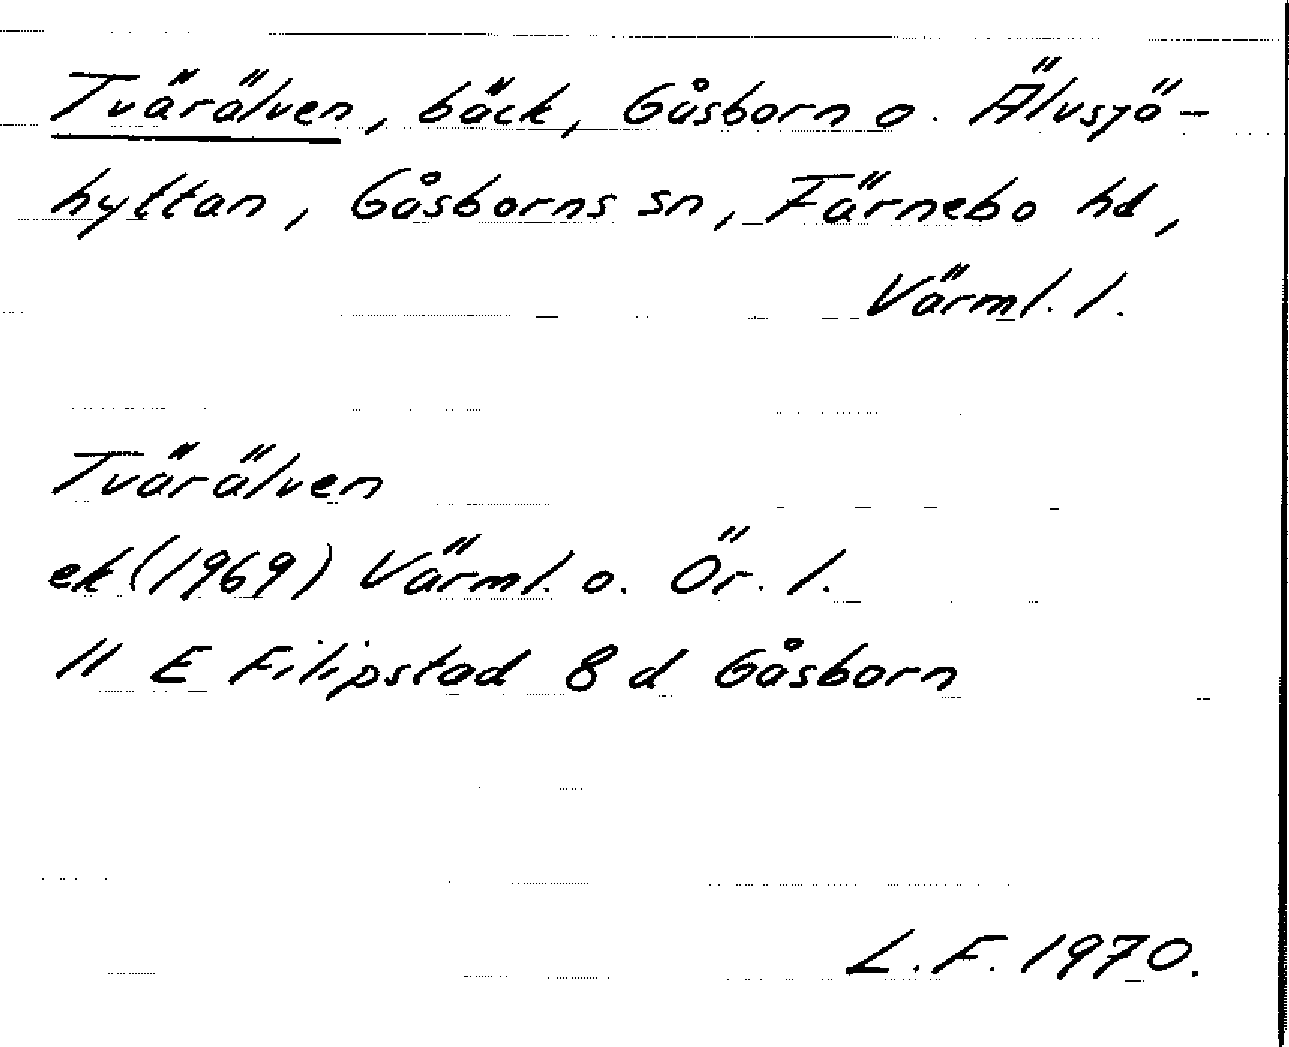 Tvärälven, bäck, Gåsborn o. Älvsjö-
hyttan, Gåsborns sn, Färnebo hd,
Värml. l.
Tvärälven
ek (1969) Värml. o. Ör. l.
11 E Filipstad 8 d Gåsborn
L.F. 1970.